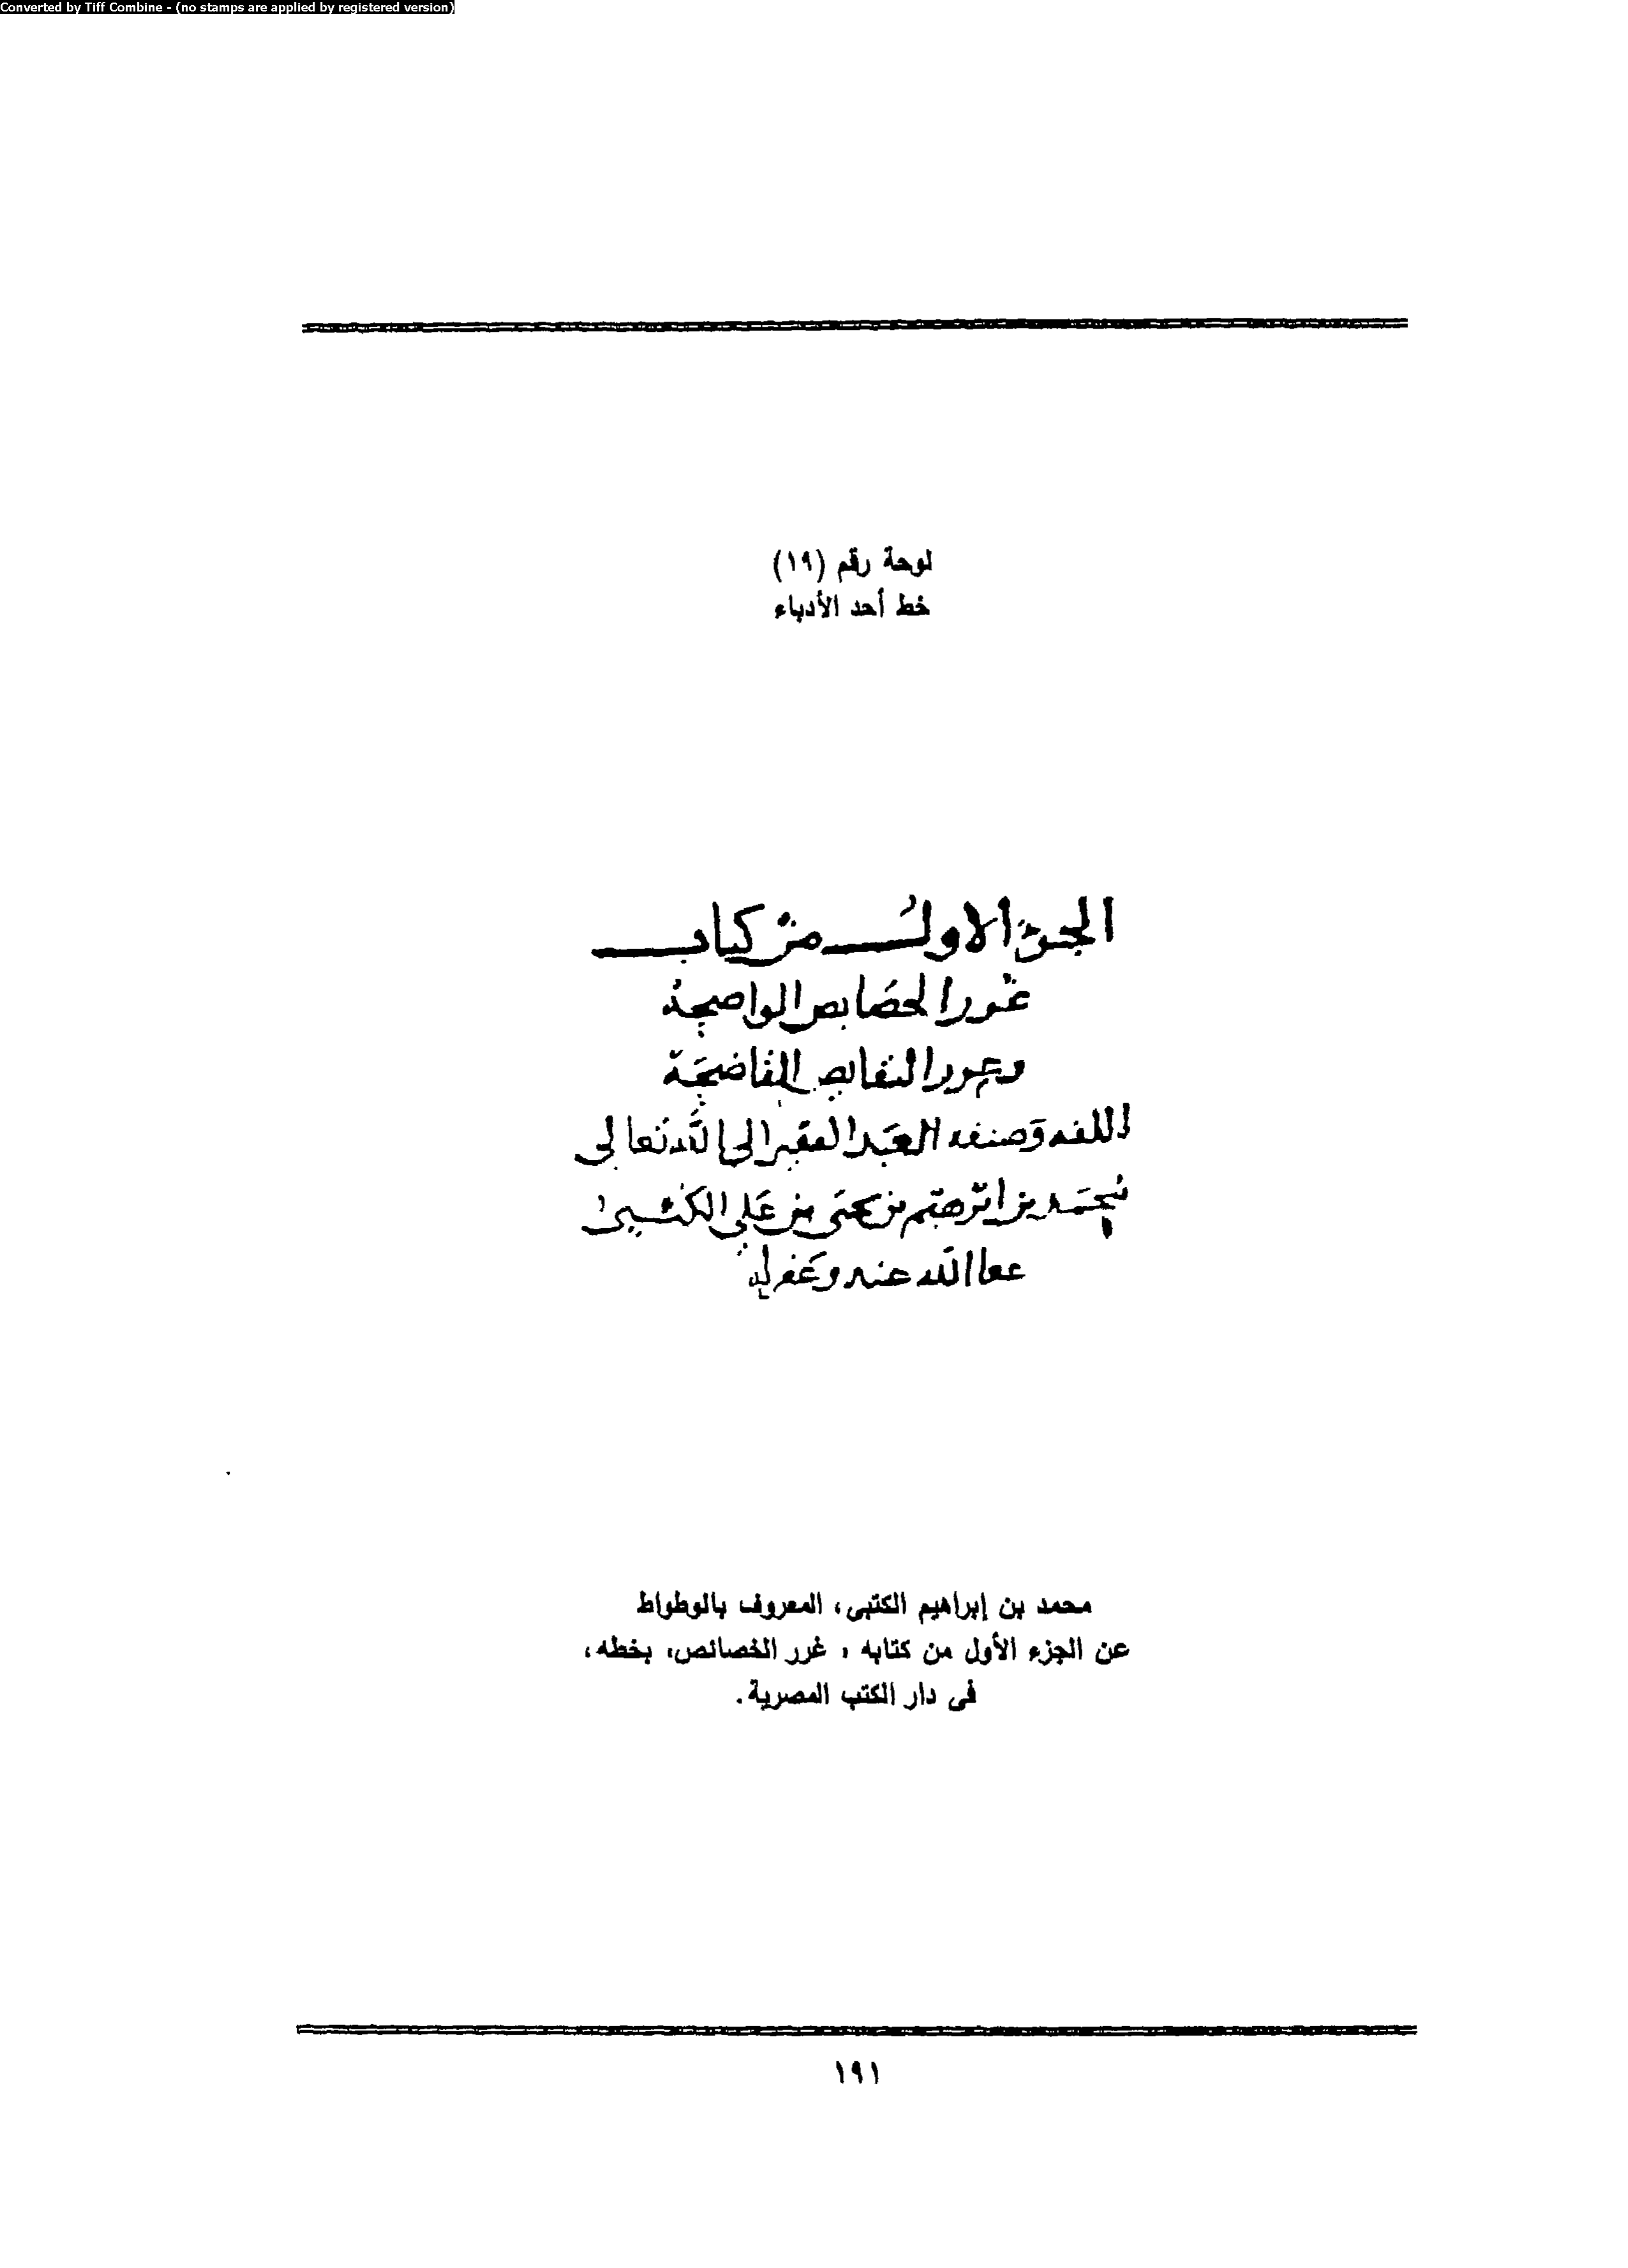 Converted by Tiff Combine - (no stamps are applied by registered version)
لوحة رقم (١٩)
خط أحد الأدباء
الجزء الاول من كتاب
غرر الخصايص الواضحة
وعرر النقايص الفاضحة
الفه وصنفه العبد الفقير الى الله تعالى
محمد بن ابرهيم بن يحيى بن علي الكتبي
عفا الله عنه وغفر له
محمد بن إبراهيم الكتبى، المعروف بالوطواط
عن الجزء الأول من كتابه « غرر الخصائص، بخطه،
فى دار الكتب المصرية.
١٩١